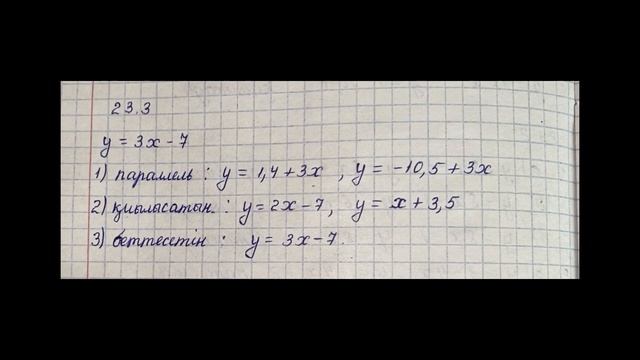 23.3
y = 3x - 7
1) параллель : y = 1,4 + 3x , y = -10,5 + 3x
2) қиылысатын : y = 2x - 7, y = x + 3,5
3) беттесетін : y = 3x - 7.